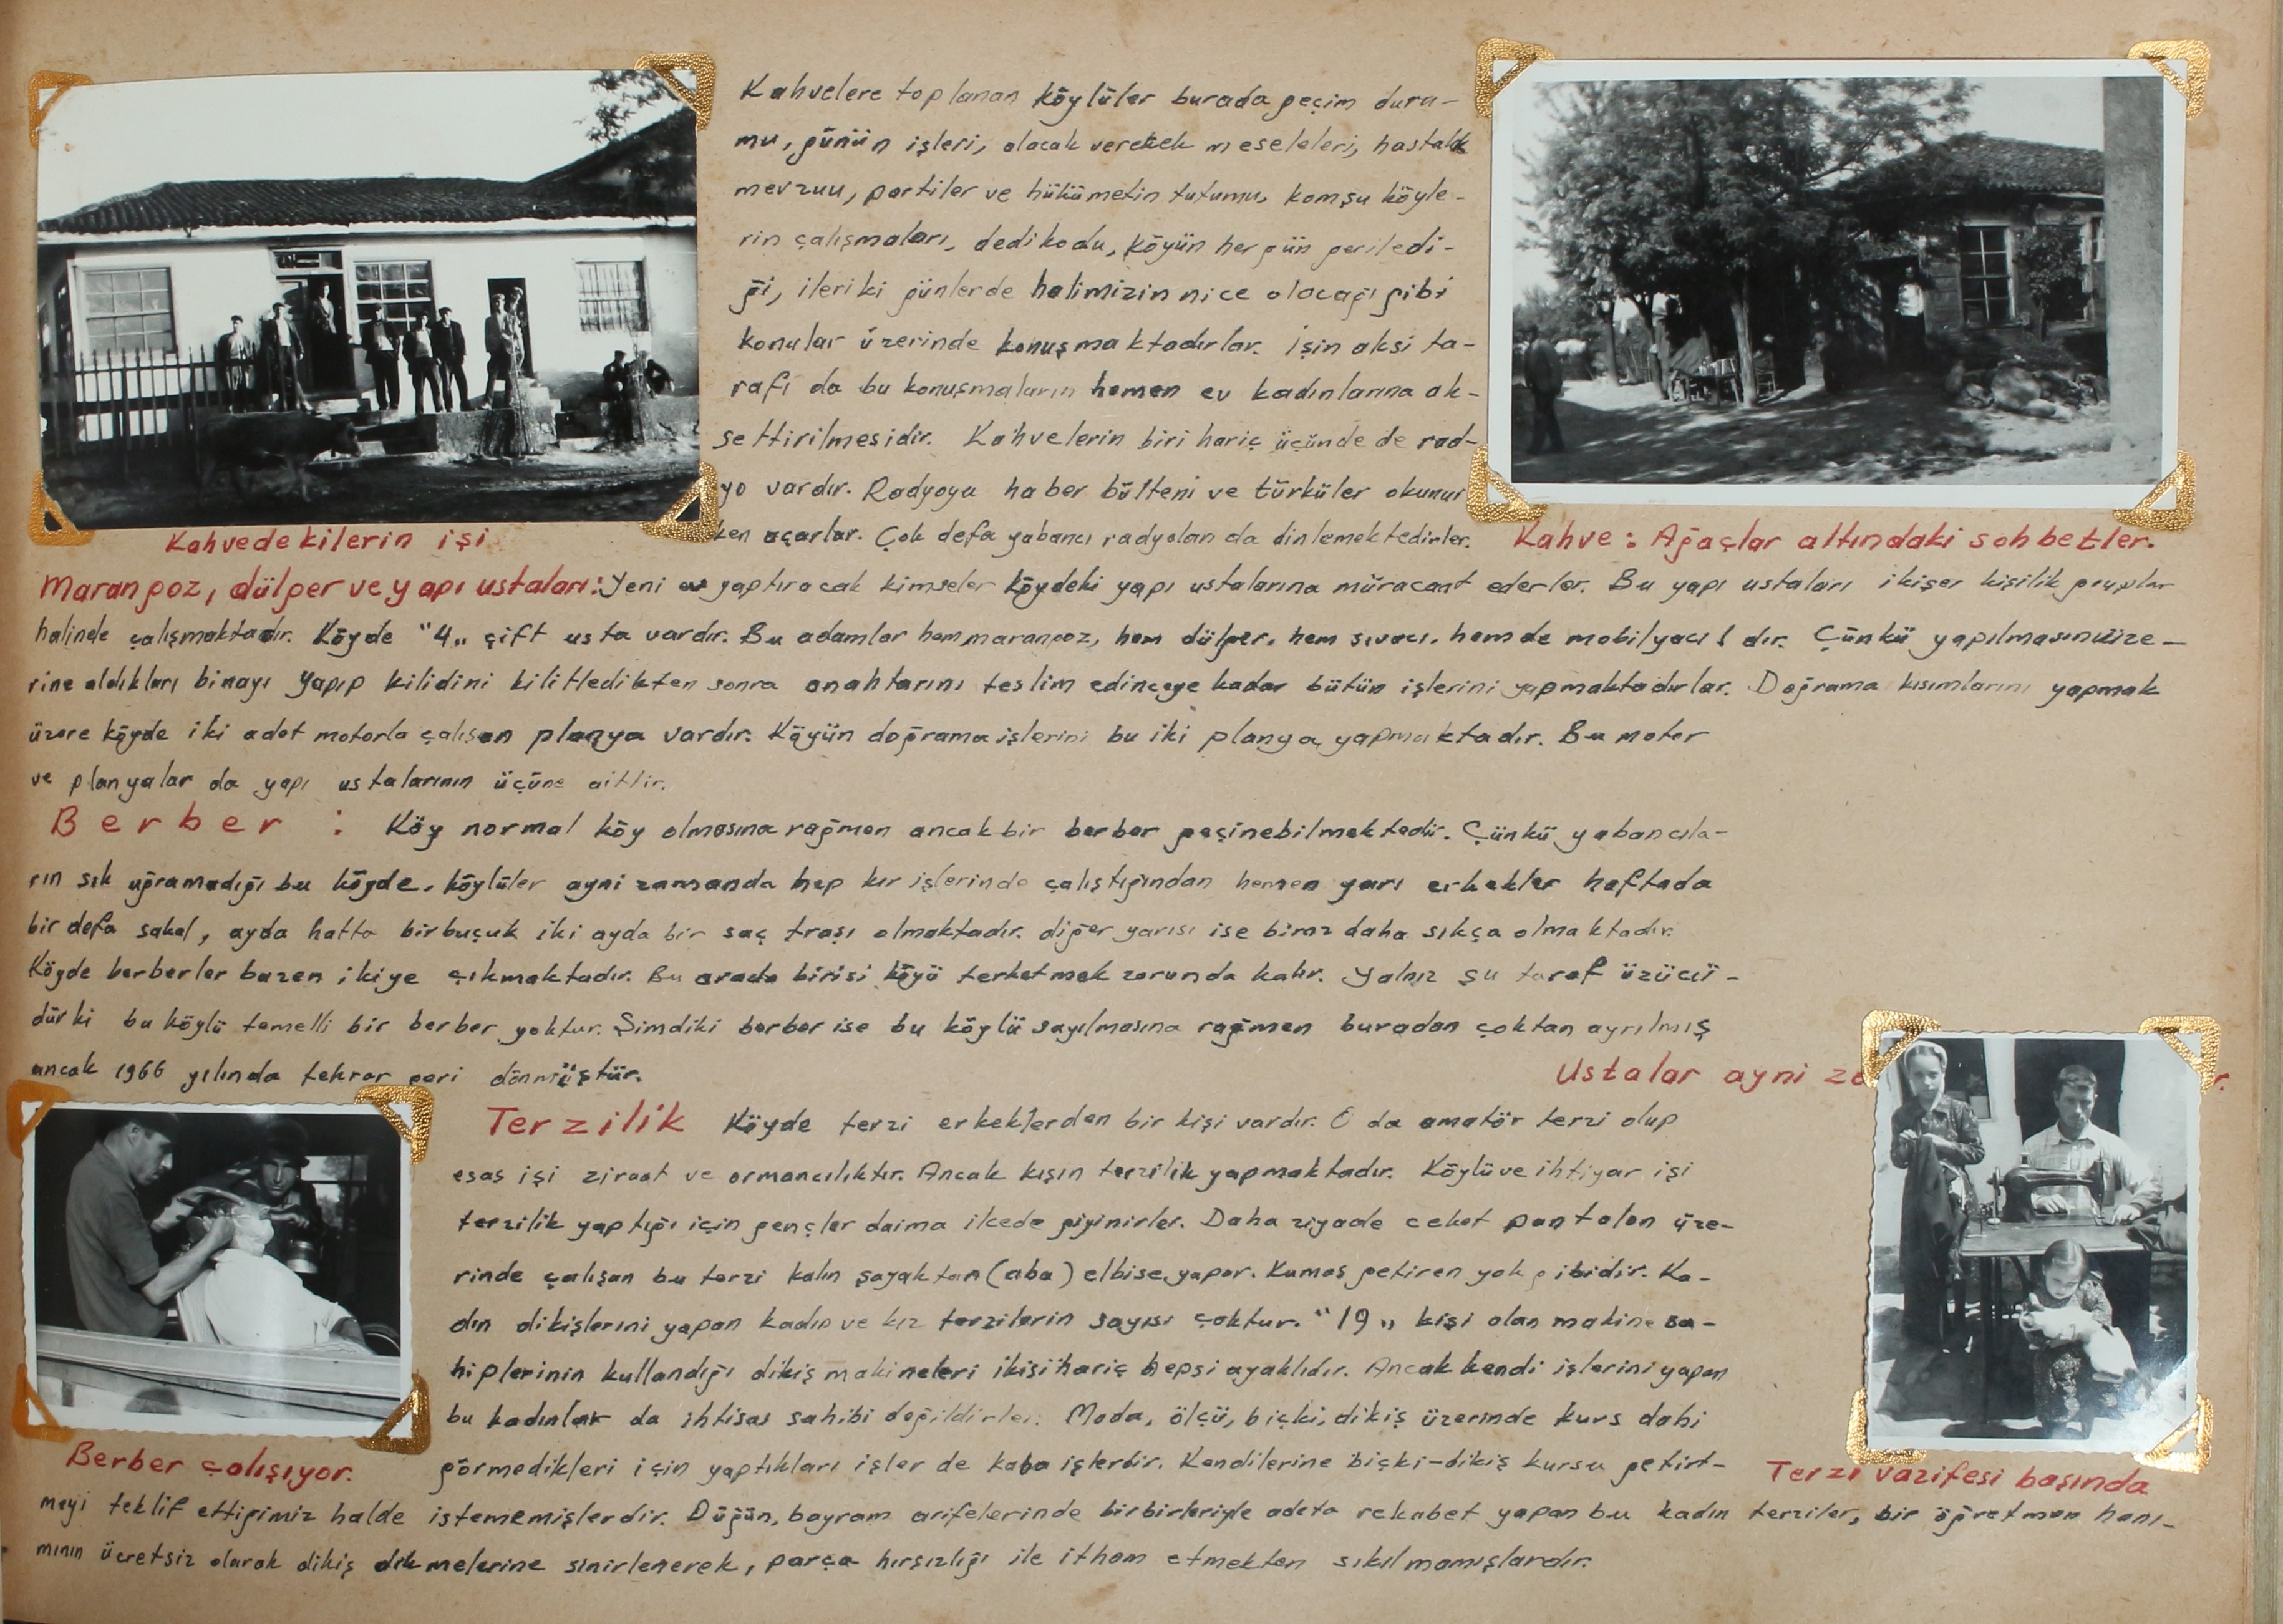 Kahvelere toplanan köylüler burada geçim duru-
mu, günün işleri, alacak verecek meseleleri, hastalık
mevzuu, partiler ve hükümetin tutumu, komşu köyle-
rin çalışmaları, dedikodu, köyün her gün geriledi-
ği, ileriki günlerde halimizin nice olacağı gibi
konular üzerinde konuşmaktadırlar. İşin aksi ta-
rafı da bu konuşmaların hemen ev kadınlarına ak-
settirilmesidir. Kahvelerin biri hariç üçünde de rad-
yo vardır. Radyoyu haber bülteni ve türküler okunur
ken açarlar. Çok defa yabancı radyoları da dinlemektedirler.
Kahvedekilerin işi
Kahve: Ağaçlar altındaki sohbetler.
Marangoz, dülger ve yapı ustaları: Yeni ev yaptıracak kimseler köydeki yapı ustalarına müracaat ederler. Bu yapı ustaları ikişer kişilik gruplar
halinde çalışmaktadır. Köyde "4" çift usta vardır. Bu adamlar hem marangoz, hem dülger, hem sıvacı, hem de mobilyacı! dır. Çünkü yapılmasını üze-
rine aldıkları binayı yapıp kilidini kilitledikten sonra anahtarını teslim edinceye kadar bütün işlerini yapmaktadırlar. Doğrama kısımlarını yapmak
üzere köyde iki adet motorla çalışan planya vardır. Köyün doğrama işlerini bu iki planya yapmaktadır. Bu motor
ve planyalar da yapı ustalarının üçüne aittir.
Berber : Köy normal köy olmasına rağmen ancak bir berber geçinebilmektedir. Çünkü yabancıla-
rın sık uğramadığı bu köyde, köylüler ayni zamanda hep kır işlerinde çalıştığından hemen yarı erkekler haftada
bir defa sakal, ayda hatta birbuçuk iki ayda bir saç traşı olmaktadır. diğer yarısı ise biraz daha sıkça olmaktadır.
Köyde berberler bazen ikiye çıkmaktadır. Bu arada birisi köyü terketmek zorunda kalır. Yalnız şu taraf üzücü-
dür ki bu köylü temelli bir berber yoktur. Şimdiki berber ise bu köylü sayılmasına rağmen buradan çoktan ayrılmış
ancak 1966 yılında tekrar geri dönmüştür.
Ustalar ayni
Terzilik Köyde terzi erkeklerden bir kişi vardır. O da amatör terzi olup
esas işi ziraat ve ormancılıktır. Ancak kışın terzilik yapmaktadır. Köylü ve ihtiyar işi
terzilik yaptığı için gençler daima ilcede giyinirler. Daha ziyade ceket pantolon üze-
rinde çalışan bu terzi kalın şayaktan (aba) elbise yapar. Kumaş getiren yok gibidir. Ka-
dın dikişlerini yapan kadın ve kız terzilerin sayısı çoktur. "19" kişi olan makine sa-
hiplerinin kullandığı dikiş makineleri ikisi hariç hepsi ayaklıdır. Ancak kendi işlerini yapan
bu kadınlar da ihtisas sahibi değildirler. Moda, ölçü, biçki, dikiş üzerinde kurs dahi
görmedikleri için yaptıkları işler de kaba işlerdir. Kendilerine biçki-dikiş kursu getirt-
meyi teklif ettiğimiz halde istememişlerdir. Düğün, bayram arifelerinde birbirleriyle adeta rekabet yapan bu kadın terziler, bir öğretmen hanı-
mının ücretsiz olarak dikiş dikmelerine sinirlenerek, parça hırsızlığı ile itham etmekten sıkılmamışlardır.
Berber çalışıyor.
Terzi vazifesi başında